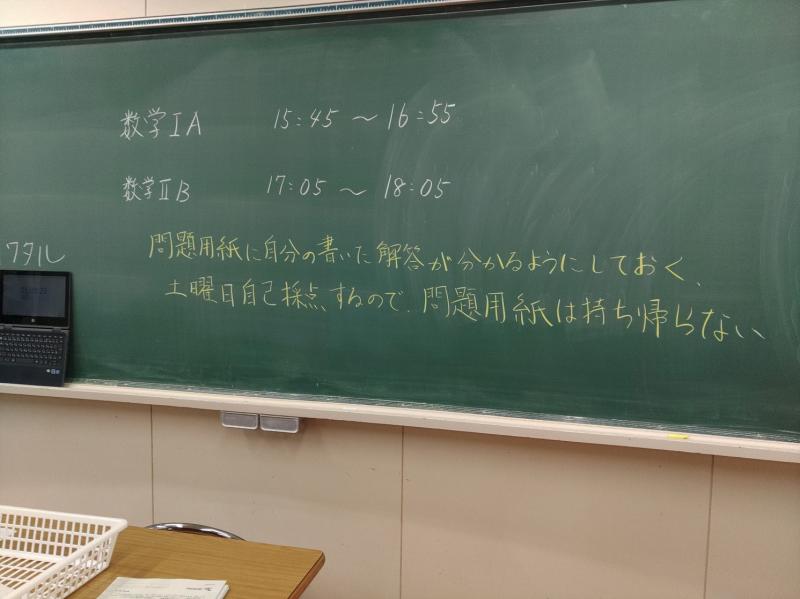 数学ⅠA 15:45 〜 16:55
数学ⅡB 17:05 〜 18:05
ワタル
問題用紙に自分の書いた解答が分かるようにしておく、
土曜日自己採点するので、問題用紙は持ち帰らない